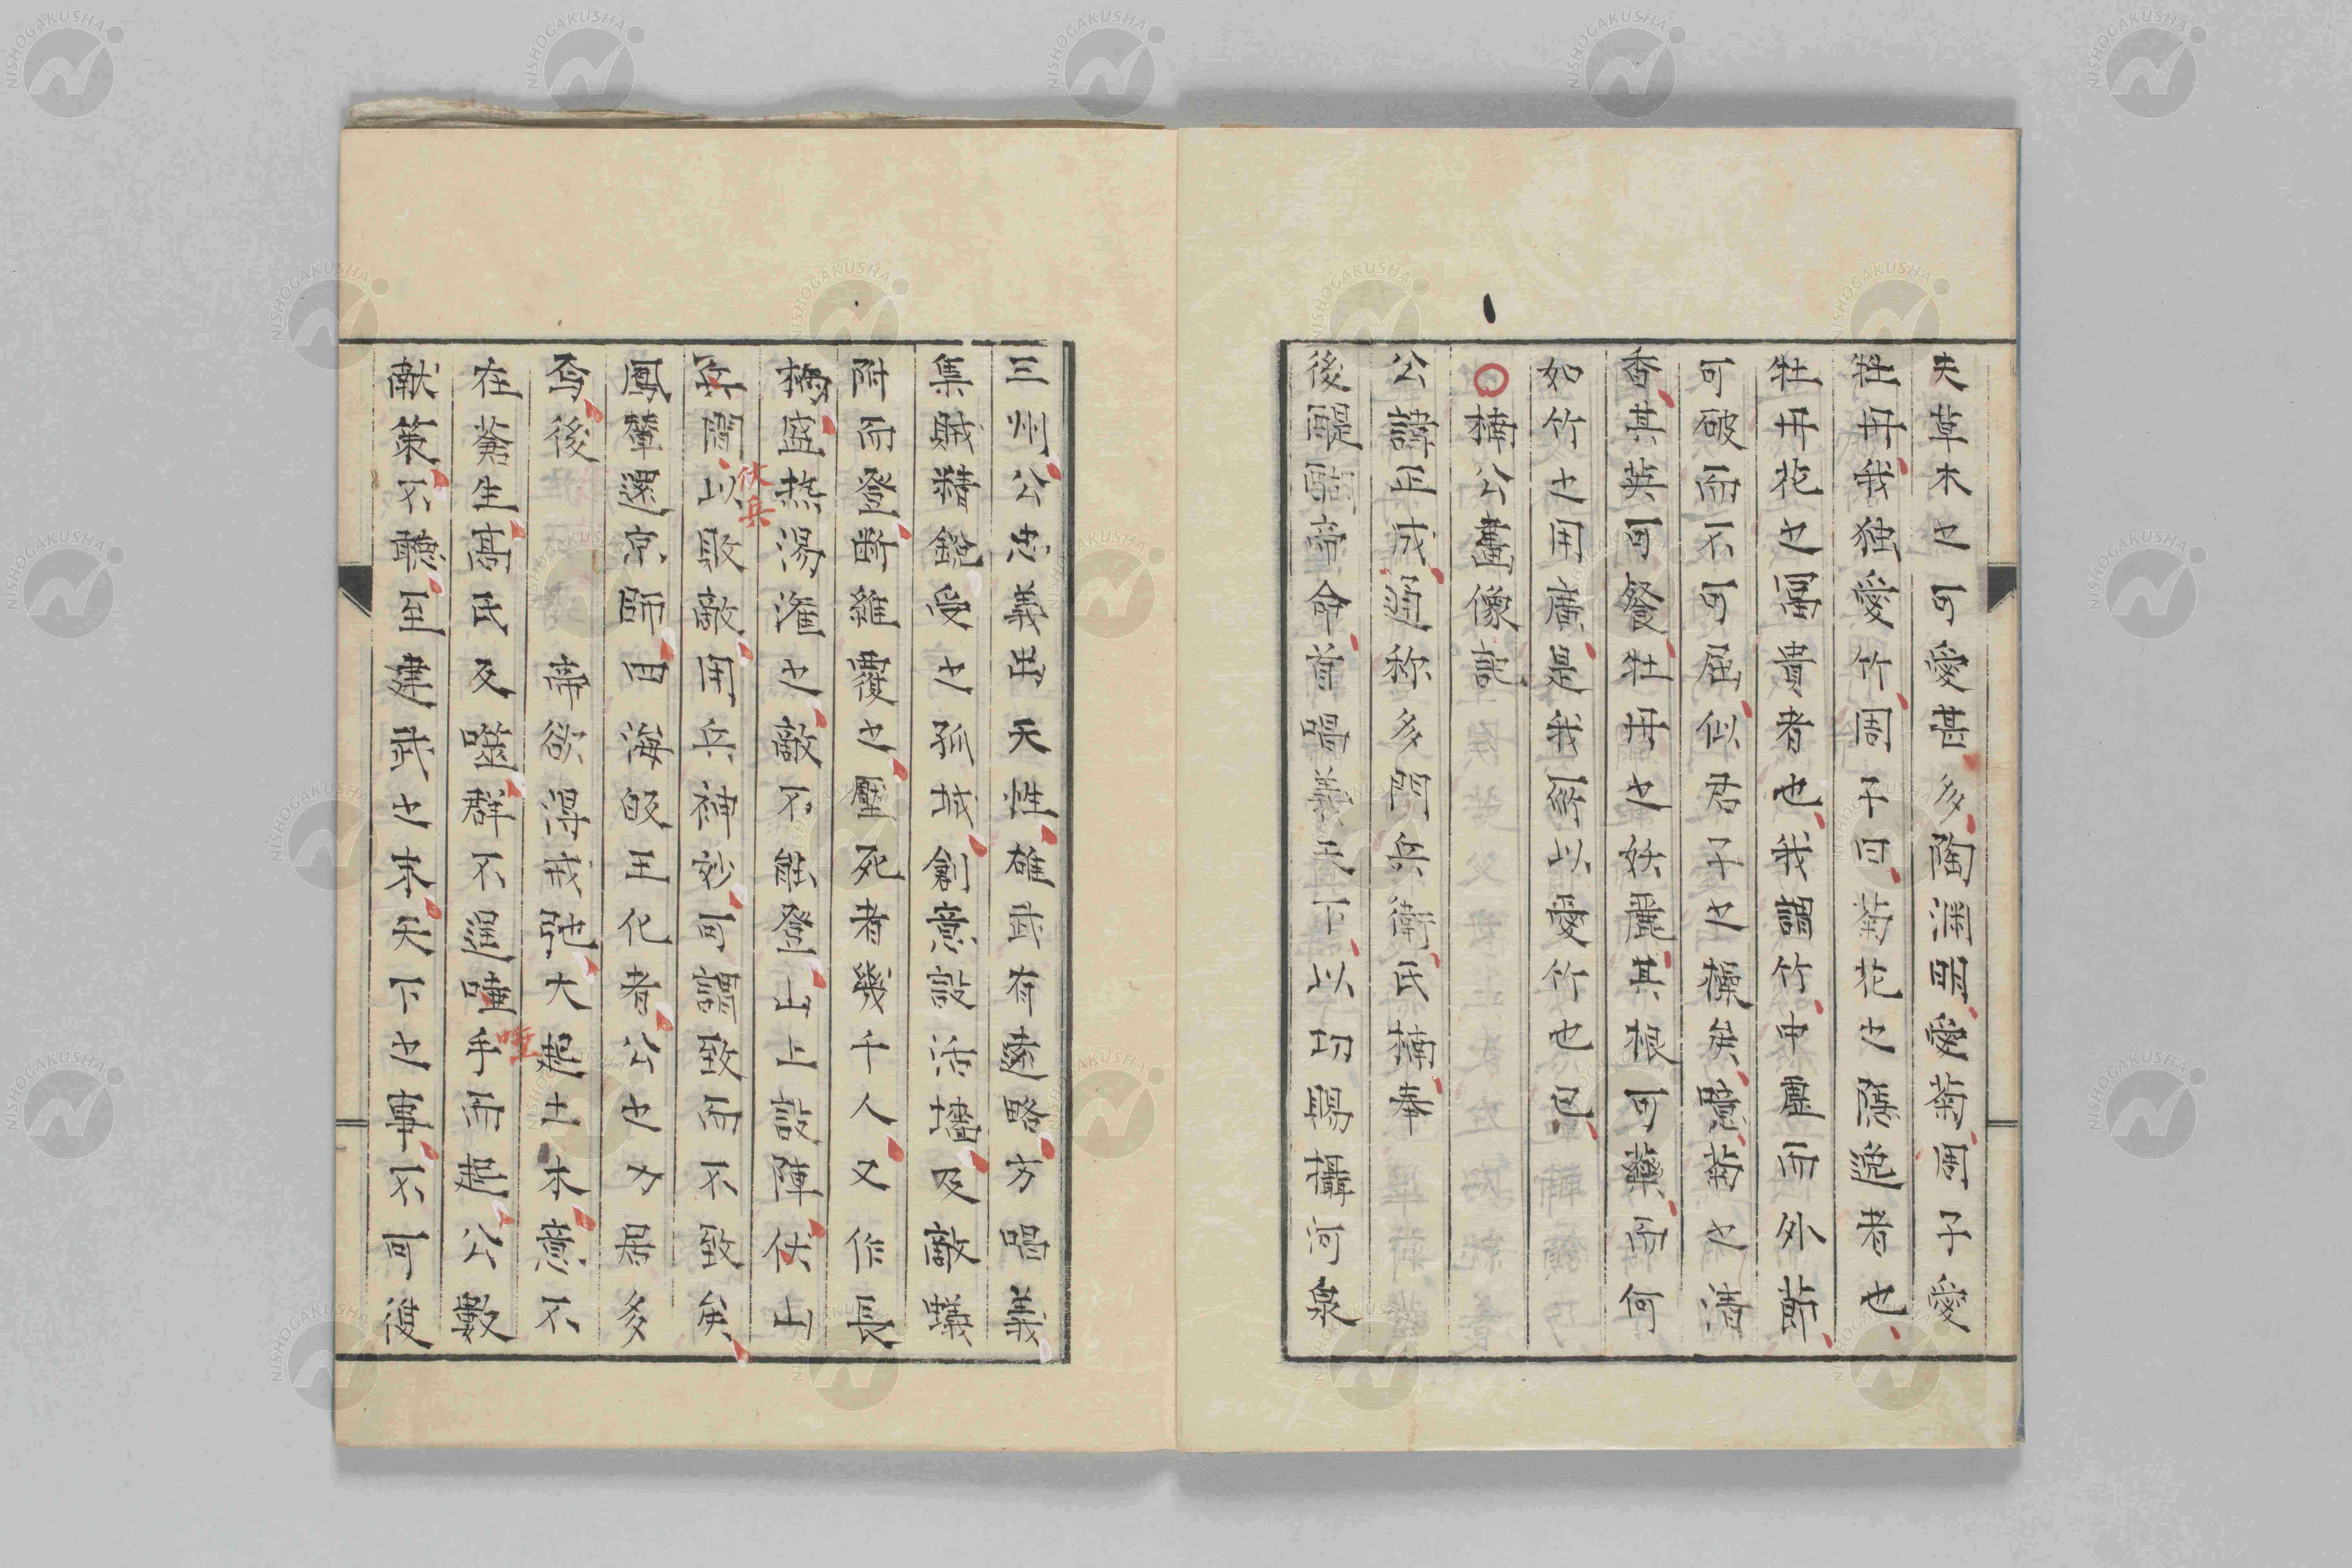 夫草木之可愛甚多陶淵明愛菊周子愛
牡丹我独愛竹周子曰菊花之隱逸者也
牡丹花之冨貴者也我謂竹中虛而外節
可破而不可屈似君子之操矣噫菊之清
香其英可餐牡丹之妖麗其根可藥而何
如竹之用廣是我所以愛竹也已
楠公畫像記
公諱正成通称多門兵衛氏楠奉
後醍醐帝命首唱義兵下以功賜攝河泉
三州公忠義出天性雄武有遠略方唱義
集賊精銳受之孤城創意設活墻及敵蟻
附而登斷維覆之壓死者幾千人又作長
柄盛热湯灌之敵不能登山上設陣伏山
兵間以致敵用兵神妙可謂致而不致矣
伏兵
鳳輦還京師四海皈王化者公之力居多
焉後 帝欲淂我馳大起土木意不
在蒼生高氏及噬群不逞唾手而起公數
唾
献策不聴至建武之末天下之事不可復
NISHOGAKUSHA